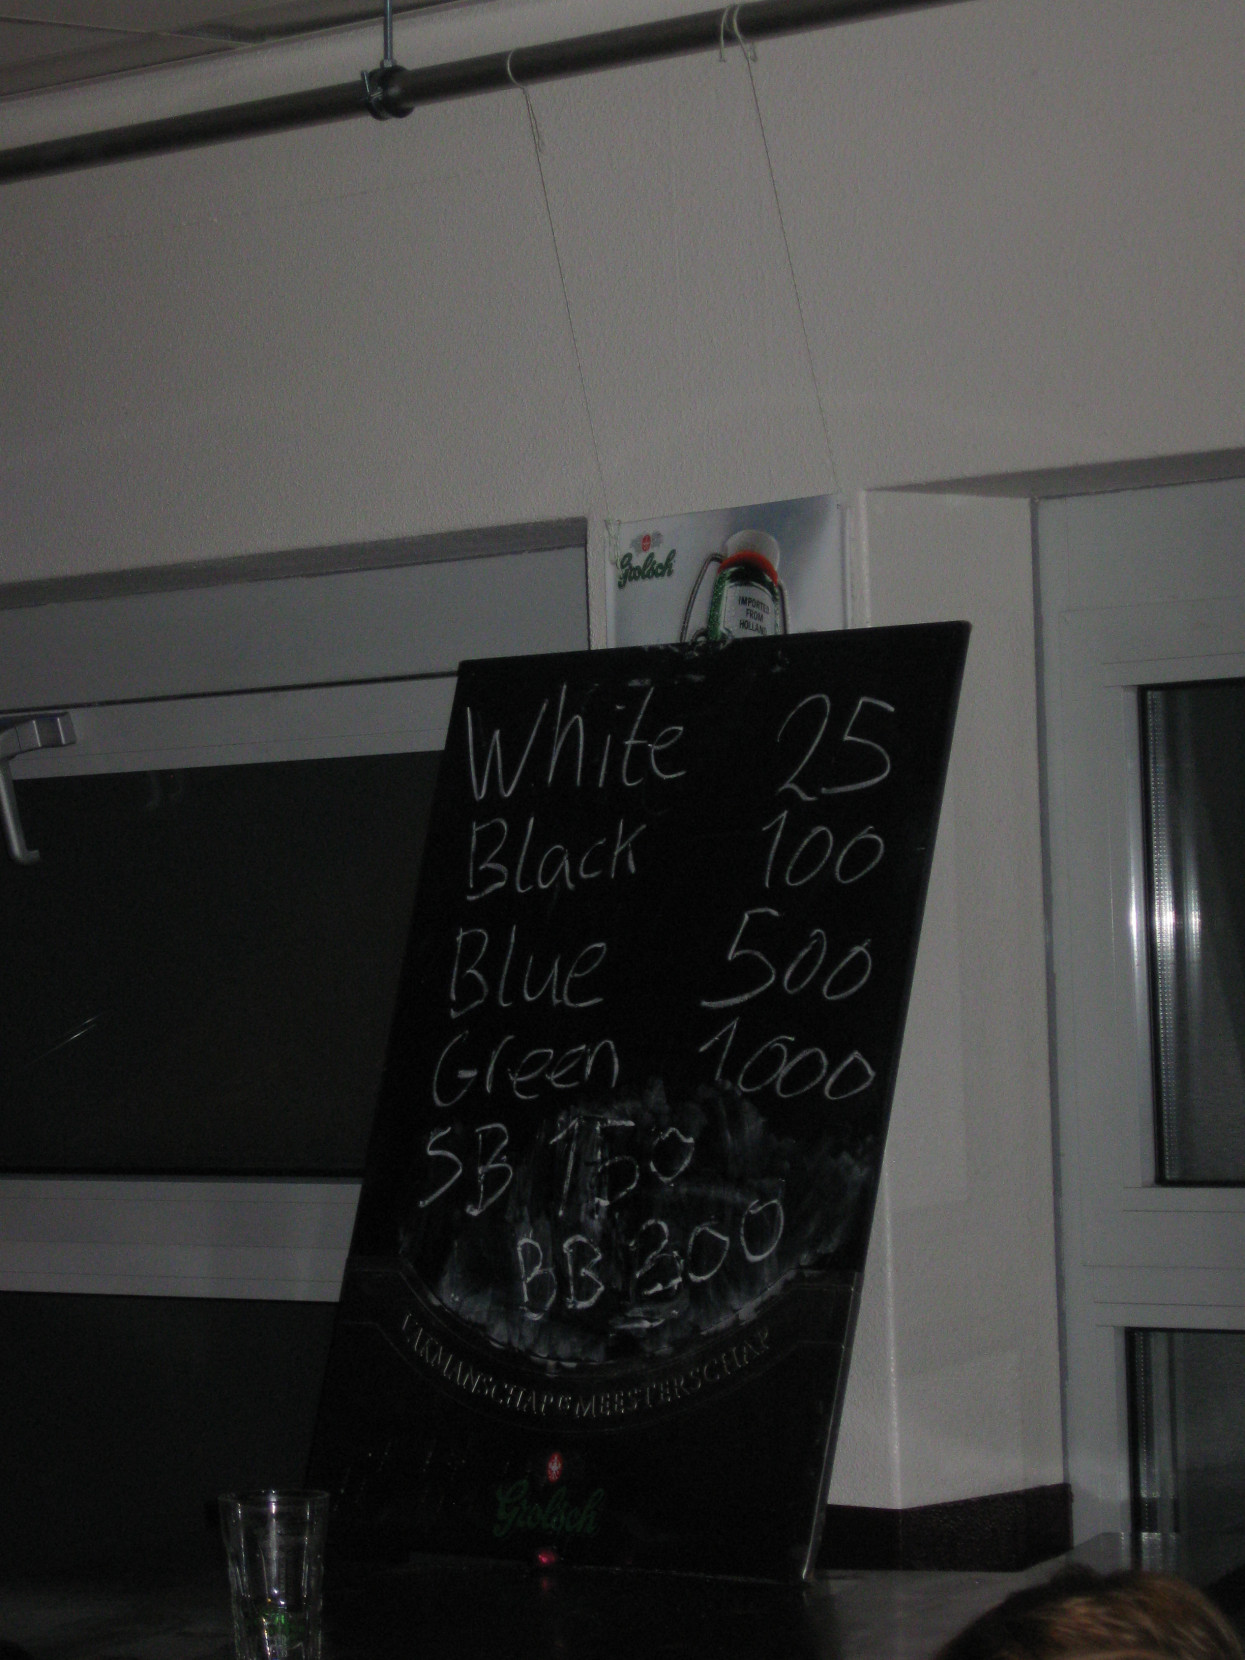 Grolsch
IMPORTED
FROM
HOLLAND
White 25
Black 100
Blue 500
Green 1000
SB 150
BB 300
VAKMANSCHAP IS MEESTERSCHAP
Grolsch